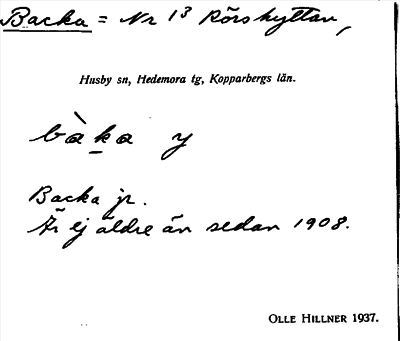 Backa = Nr 13 Rörshyttan,
Husby sn, Hedemora tg, Kopparbergs län.
bàka y
Backa jr.
Är ej äldre än sedan 1908.
OLLE HILLNER 1937.